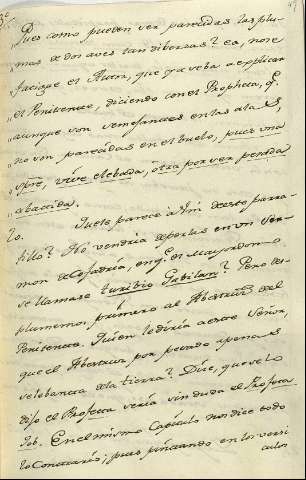 "Pues como pueden ver parecidas las plu-
"mas de dos aves tan diversas? ea, no se
"fatigue el Autor, que ya veba a explicar
"el Penitente, diciendo con el Propheta, q.e
"aunque son semejantes en las alas,
"no son pareadas en el buelo, pues una
"spre, vive elebada, otra por ver perdida
"abatida.
lo. Que te parece a ti mi de este parra-
fillo? No vendria de perlas en un Ser-
mon de Cofadria, en q.e el Mayordomo
se llamase turibio Gabilan? Pero des-
plumemos primero al Abestruz del
Penitente. Quien le diria a este Señor,
que el Abestruz por pesado apenas
se lebanta de la tierra? Dire, que se lo
dijo el Profeta seria sin duda el Profeta
Job. En el mismo Capitulo nos dice todo
lo Contrario; pues pintando en los versi
culos